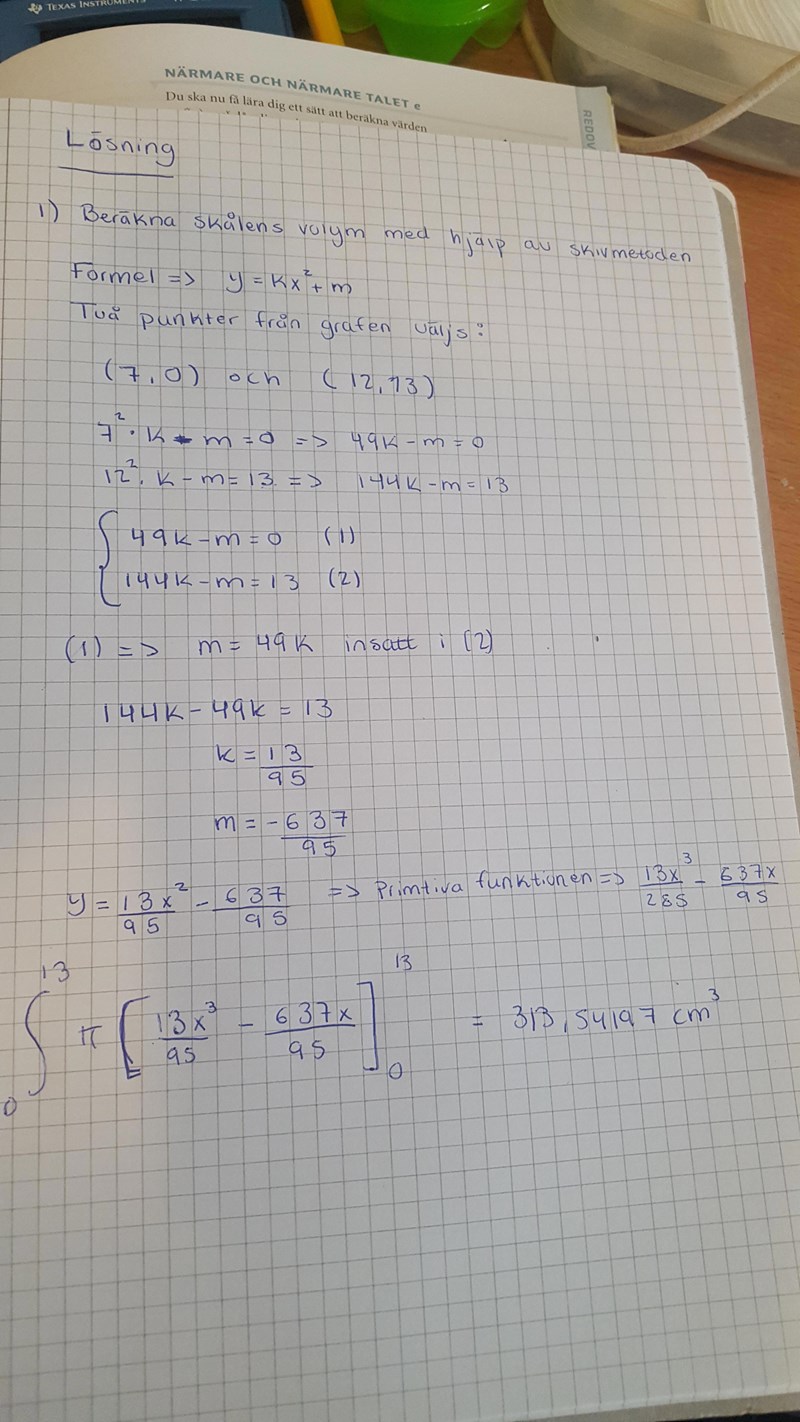 TEXAS INSTRUMENTS
NÄRMARE OCH NÄRMARE TALET e
Du ska nu få lära dig ett sätt att beräkna värden
REDOV
Lösning
1) Beräkna skålens volym med hjälp av skivmetoden
Formel => y = kx² + m
Två punkter från grafen väljs:
(7,0) och (12,13)
7² · k - m = 0 => 49k - m = 0
12² · k - m = 13 => 144k - m = 13
{ 49k - m = 0 (1)
144k - m = 13 (2)
(1) => m = 49k insatt i (2)
144k - 49k = 13
k = 13/95
m = -637/95
y = 13x²/95 - 637/95 => Primtiva funktionen => 13x³/285 - 637x/95
∫₀¹³ π [13x³/95 - 637x/95]₀¹³ = 313,54197 cm³